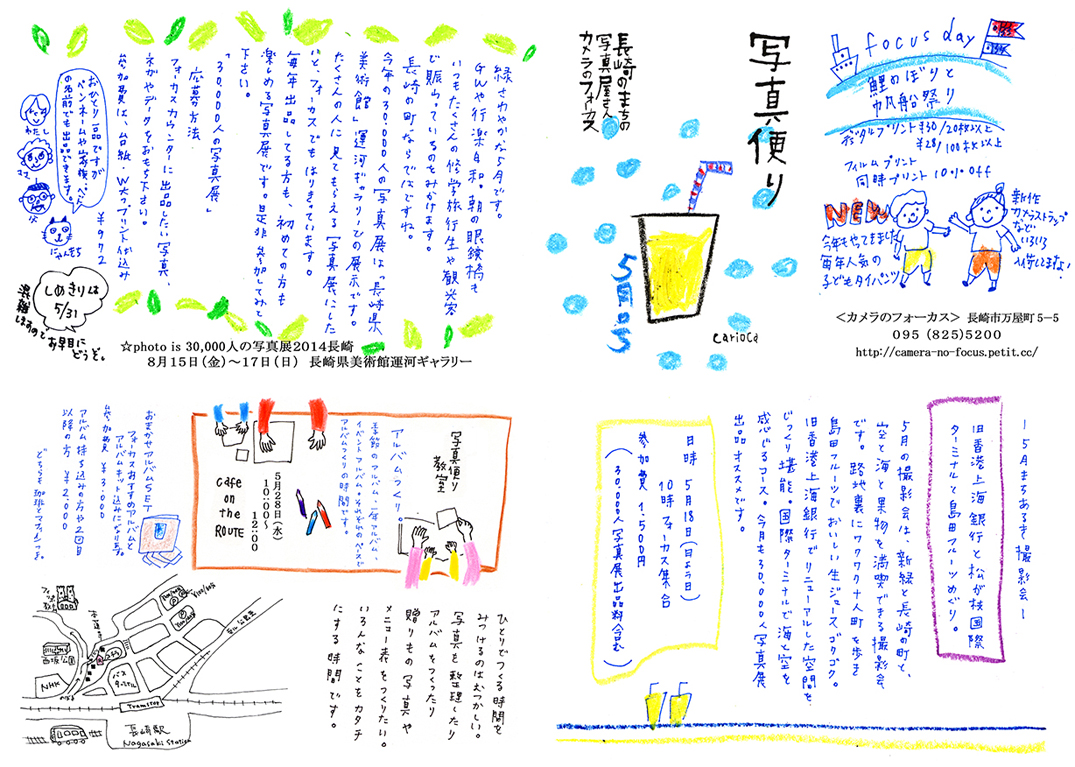 写真便り
長崎のまちの
写真屋さん
カメラのフォーカス
5月号
carioca
focus day
鯉のぼりと
帆船祭り
デジタルプリント ¥30/20枚以上
¥28/100枚以上
フィルムプリント
同時プリント 10% off
NEW
今年もやってきました
毎年人気の
子どもタイパンツ
新作
カメラストラップ
など
いろいろ
入荷してますよ!
<カメラのフォーカス> 長崎市万屋町5−5
095 (825)5200
http://camera-no-focus.petit.cc/
緑さわやかな5月です。
GWや行楽日和。朝の眼鏡橋も
いつもたくさんの修学旅行生や観光客
で賑わっているのをみかけます。
長崎の町ならではですね。
今年の30,000人の写真展は「長崎県
美術館」運河ギャラリーでの展示です。
たくさんの人に見てもらえる写真展にした
いと、フォーカスでもはりきっています。
毎年出品してる方も、初めての方も
楽しめる写真展です。是非参加してみて
下さい。
「30,000人の写真展」
応募方法
フォーカスカウンターに出品したい写真、
ネガやデータをおもち下さい。
参加費は、台紙・Wプリント仕込み
¥972
おひとり一品ですが
ペンネームや家族、ペット
の名前でも出品できます。
わたし
ママ
父
にゃんきち
しめきりは
5/31
混雑
しますので
お早目に
どうぞ。
☆photo is 30,000人の写真展2014長崎
8月15日(金)〜17日(日) 長崎県美術館運河ギャラリー
写真便り
教室
アルバムつくり。
季節のアルバム、一年アルバム、
イベントアルバム。それぞれのペースで
アルバムつくりの時間です。
5月28日(水)
10:00〜
12:00
cafe
on
the
ROUTE
おまかせアルバムSET
フォーカスおすすめのアルバムと
アルバムキット込みになります。
参加費 ¥3,000
アルバム持ち込みの方や2回目
以降の方 ¥2,000
どちらも珈琲とマフィンつき。
ひとりでつくる時間を
みつけるのはむつかしい。
写真を整理したり
アルバムをつくったり
贈りもの写真や
メニュー表をつくりたい。
いろんなことをカタチ
にする時間です。
西坂公園
NHK
バス
ターミナル
Tramstop
長崎駅
Nagasaki Station
ー5月まちあるき撮影会ー
旧香港上海銀行と松が枝国際
ターミナルと島田フルーツめぐり。
5月の撮影会は、新緑と長崎の町と、
空と海と果物を満喫できる撮影会
です。路地裏にワクワク十人町を歩き
島田フルーツでおいしい生ジュースゴクゴク。
旧香港上海銀行でリニューアルした空間を
じっくり堪能。国際ターミナルで海と空を
感じるコース。今月も30,000人写真展
出品オススメです。
日時 5月18日(日よう日)
10時フォーカス集合
参加費 1,500円
(30,000人写真展出品料含む)